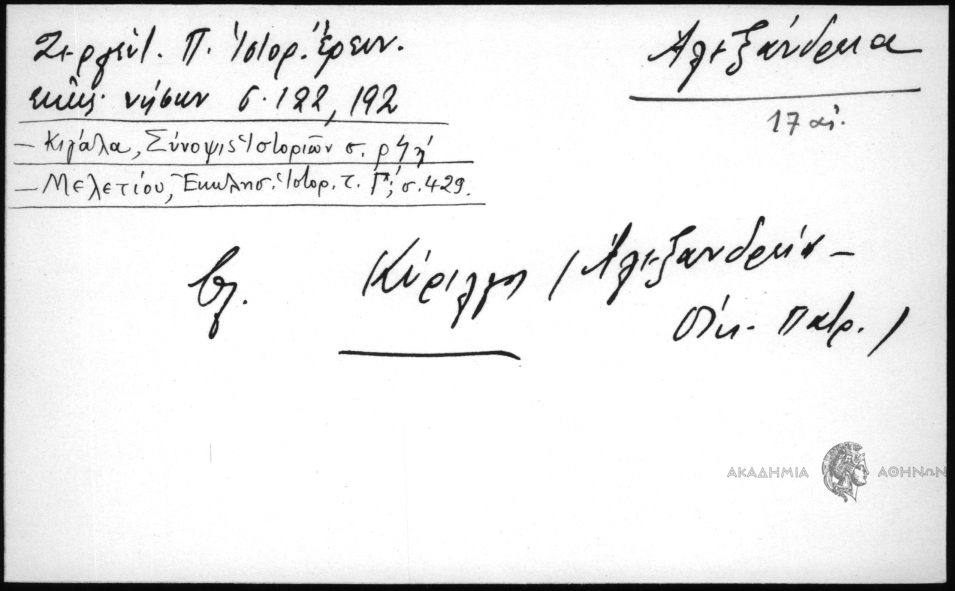 Ζερλέντ. Π. Ἱστορ. Ἔρευν.
ἐκκλ. νήσων σ. 122, 192
Ἀλεξάνδρεια
17 αἰ.
– Κιγάλα, Σύνοψις Ἱστοριῶν σ. ρϟη΄
– Μελετίου, Ἐκκλησ. Ἱστορ. τ. Γ΄, σ. 429.
βλ. Κύριλλον (Ἀλεξανδρεία –
Οἰκ. Πατρ.)
ΑΚΑΔΗΜΙΑ ΑΘΗΝΩΝ